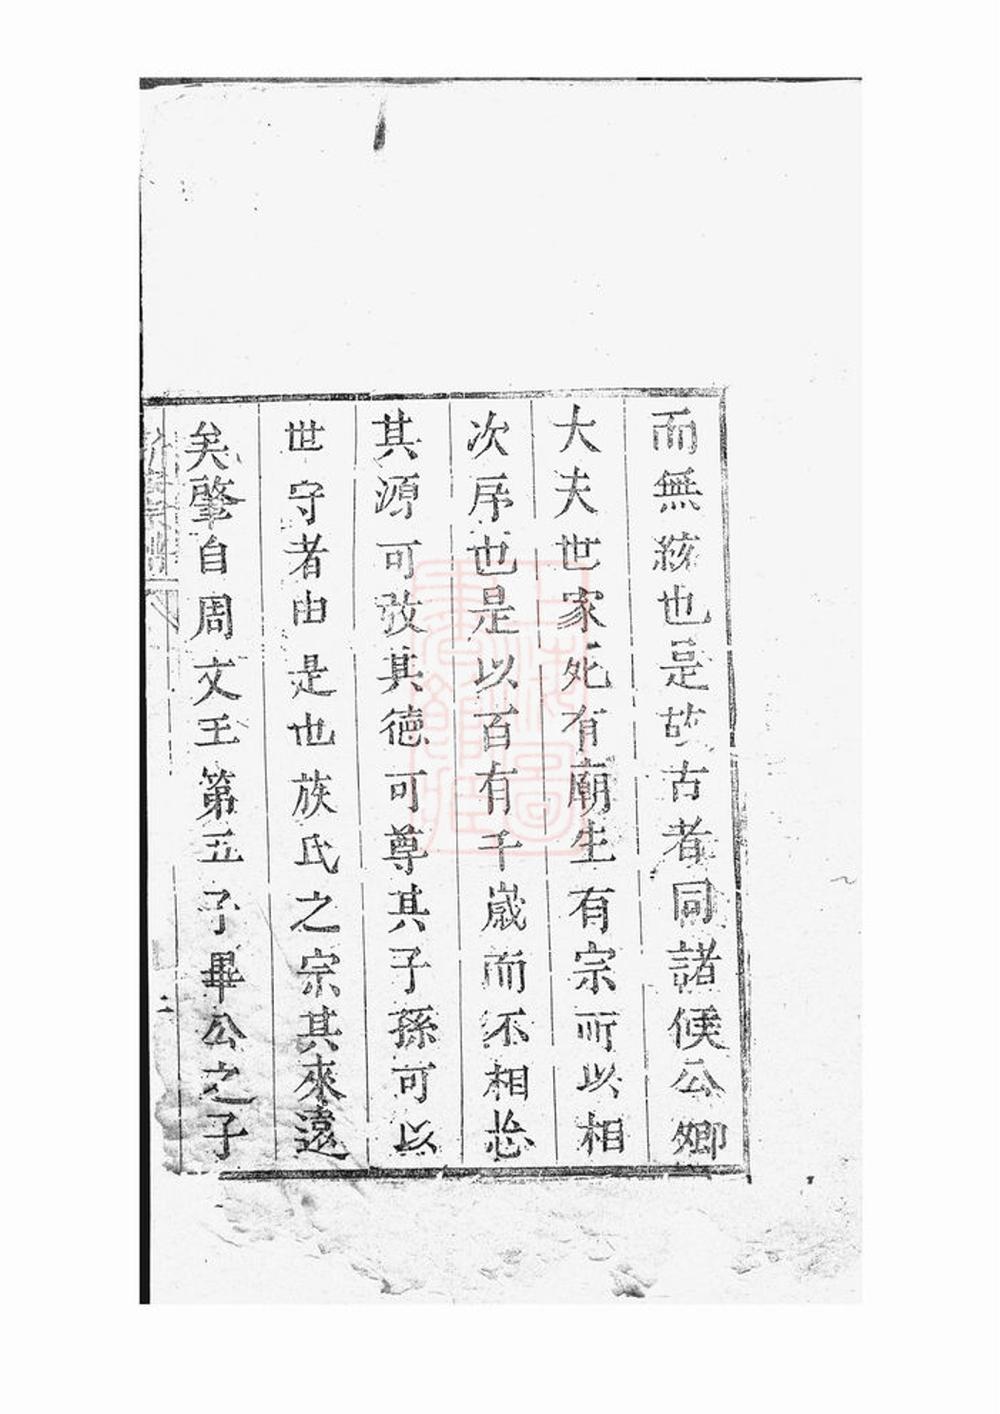 而無紊也是故古者同諸候公卿
大夫世家死有廟生有宗所以相
次序也是以百有千嵗而不相怂
其源可攷其德可尊其子孫可以
世守者由是也族氏之宗其來遠
矣肇自周文王第五子畢公之子
二